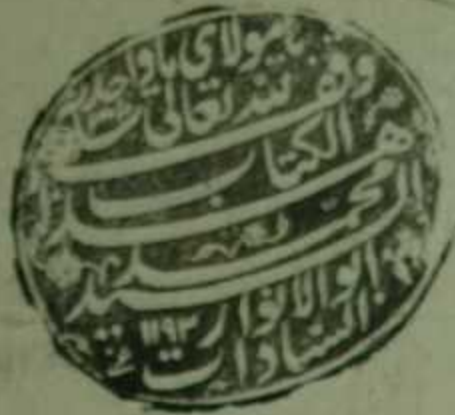 يا مولاى يا واحد
وقف لله تعالى
هذا الكتاب
السيد محمد
ابو الانوار ١١٩٢
السادات